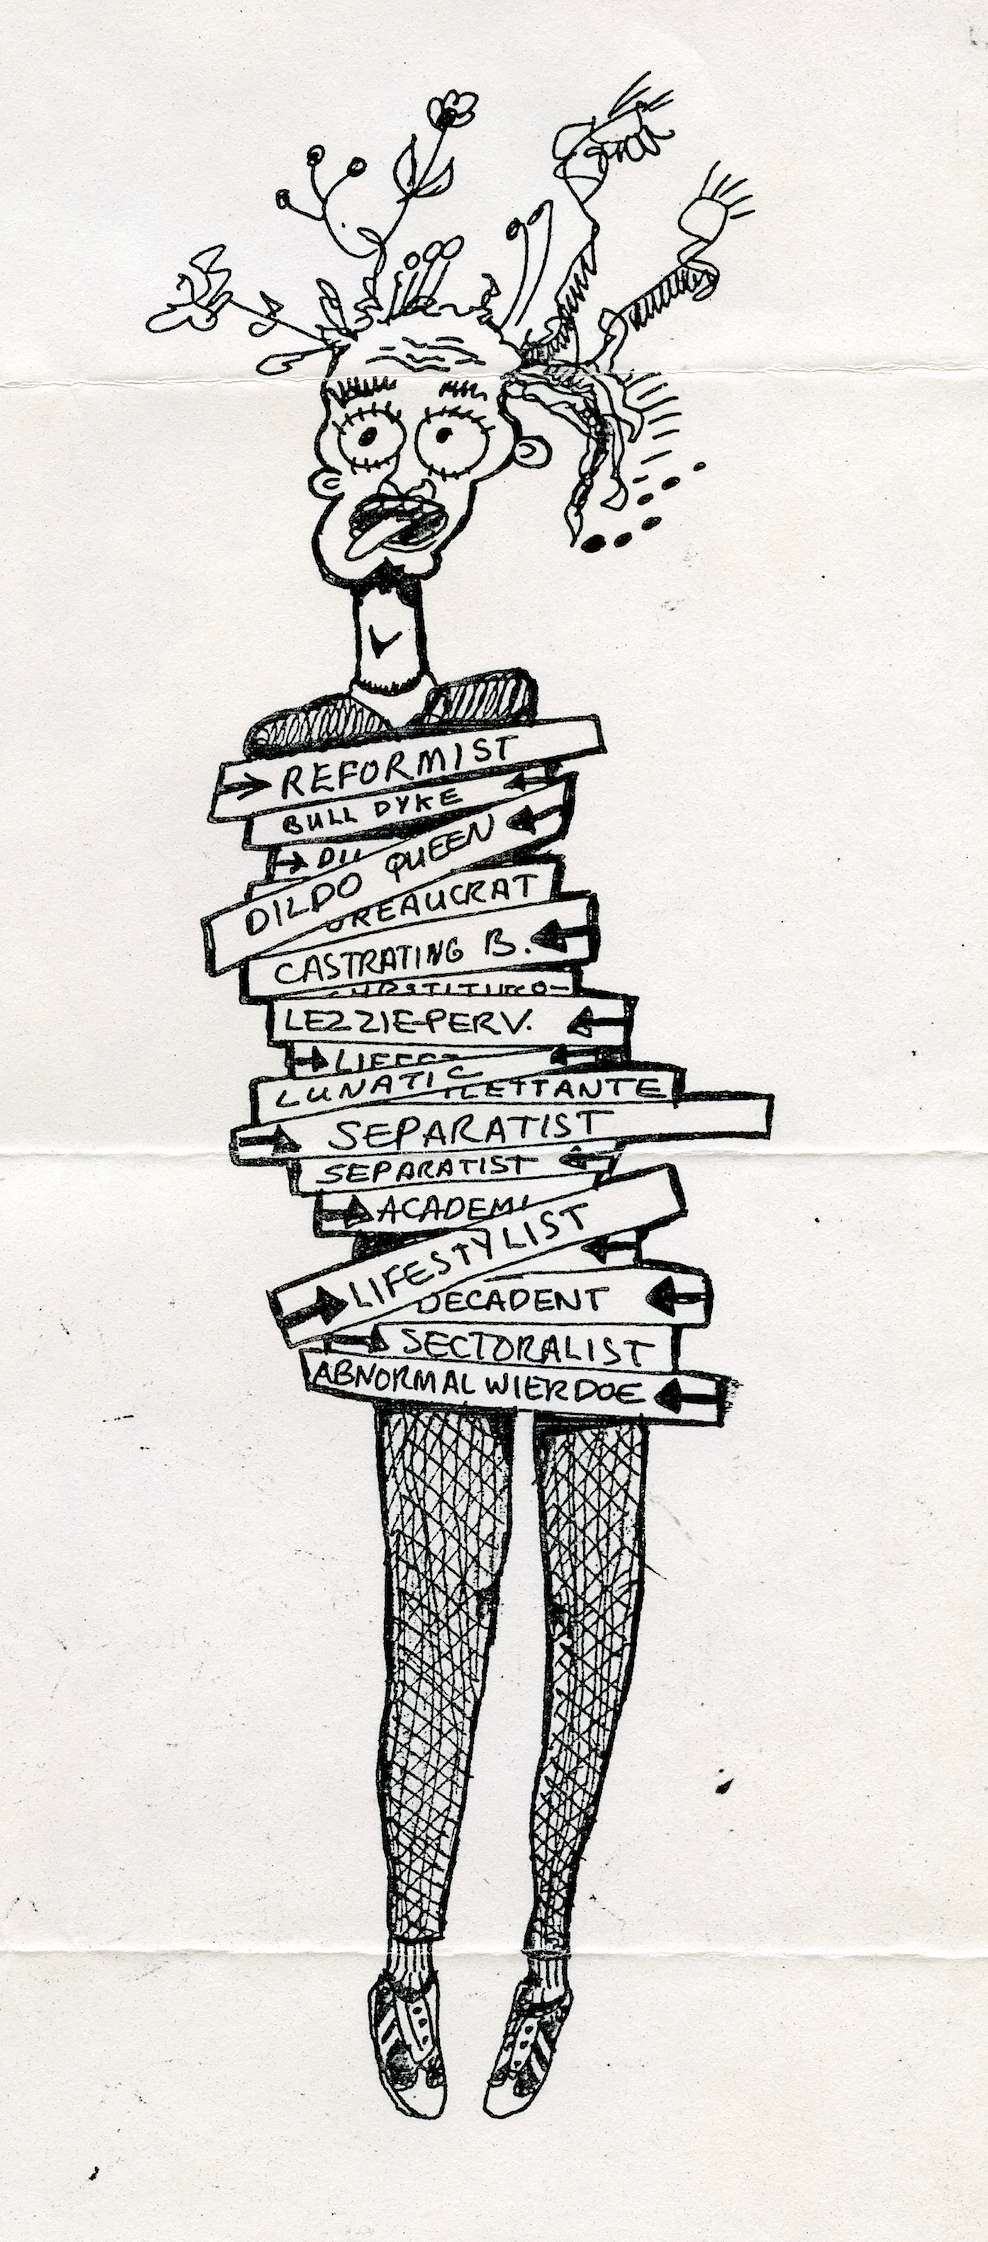 REFORMIST
BULL DYKE
DILDO QUEEN
REAUCRAT
CASTRATING B.
LEZZIE-PERV.
LUNATIC
LETTANTE
SEPARATIST
SEPARATIST
ACADEMI
LIFESTYLIST
DECADENT
SECTORALIST
ABNORMAL WIERDOE